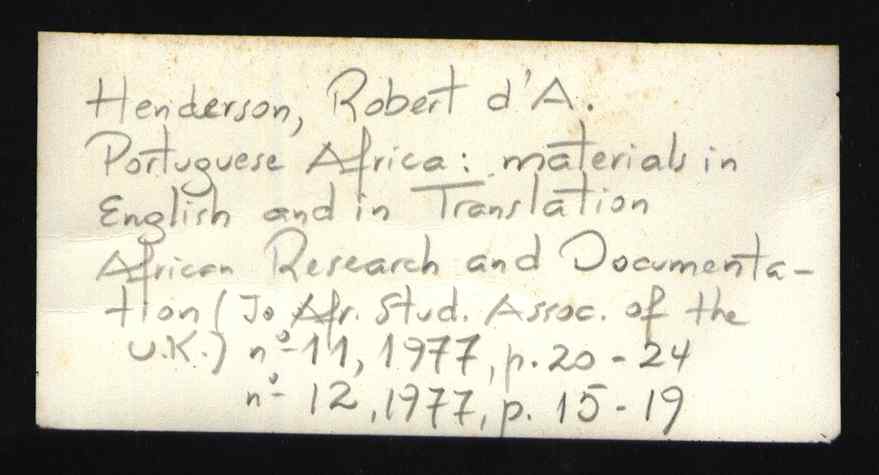 Henderson, Robert d'A.
Portuguese Africa: materials in
English and in Translation
African Research and Documenta-
tion (Jo Afr. Stud. Assoc. of the
U.K.) nº 11, 1977, p. 20-24
nº 12, 1977, p. 15-19